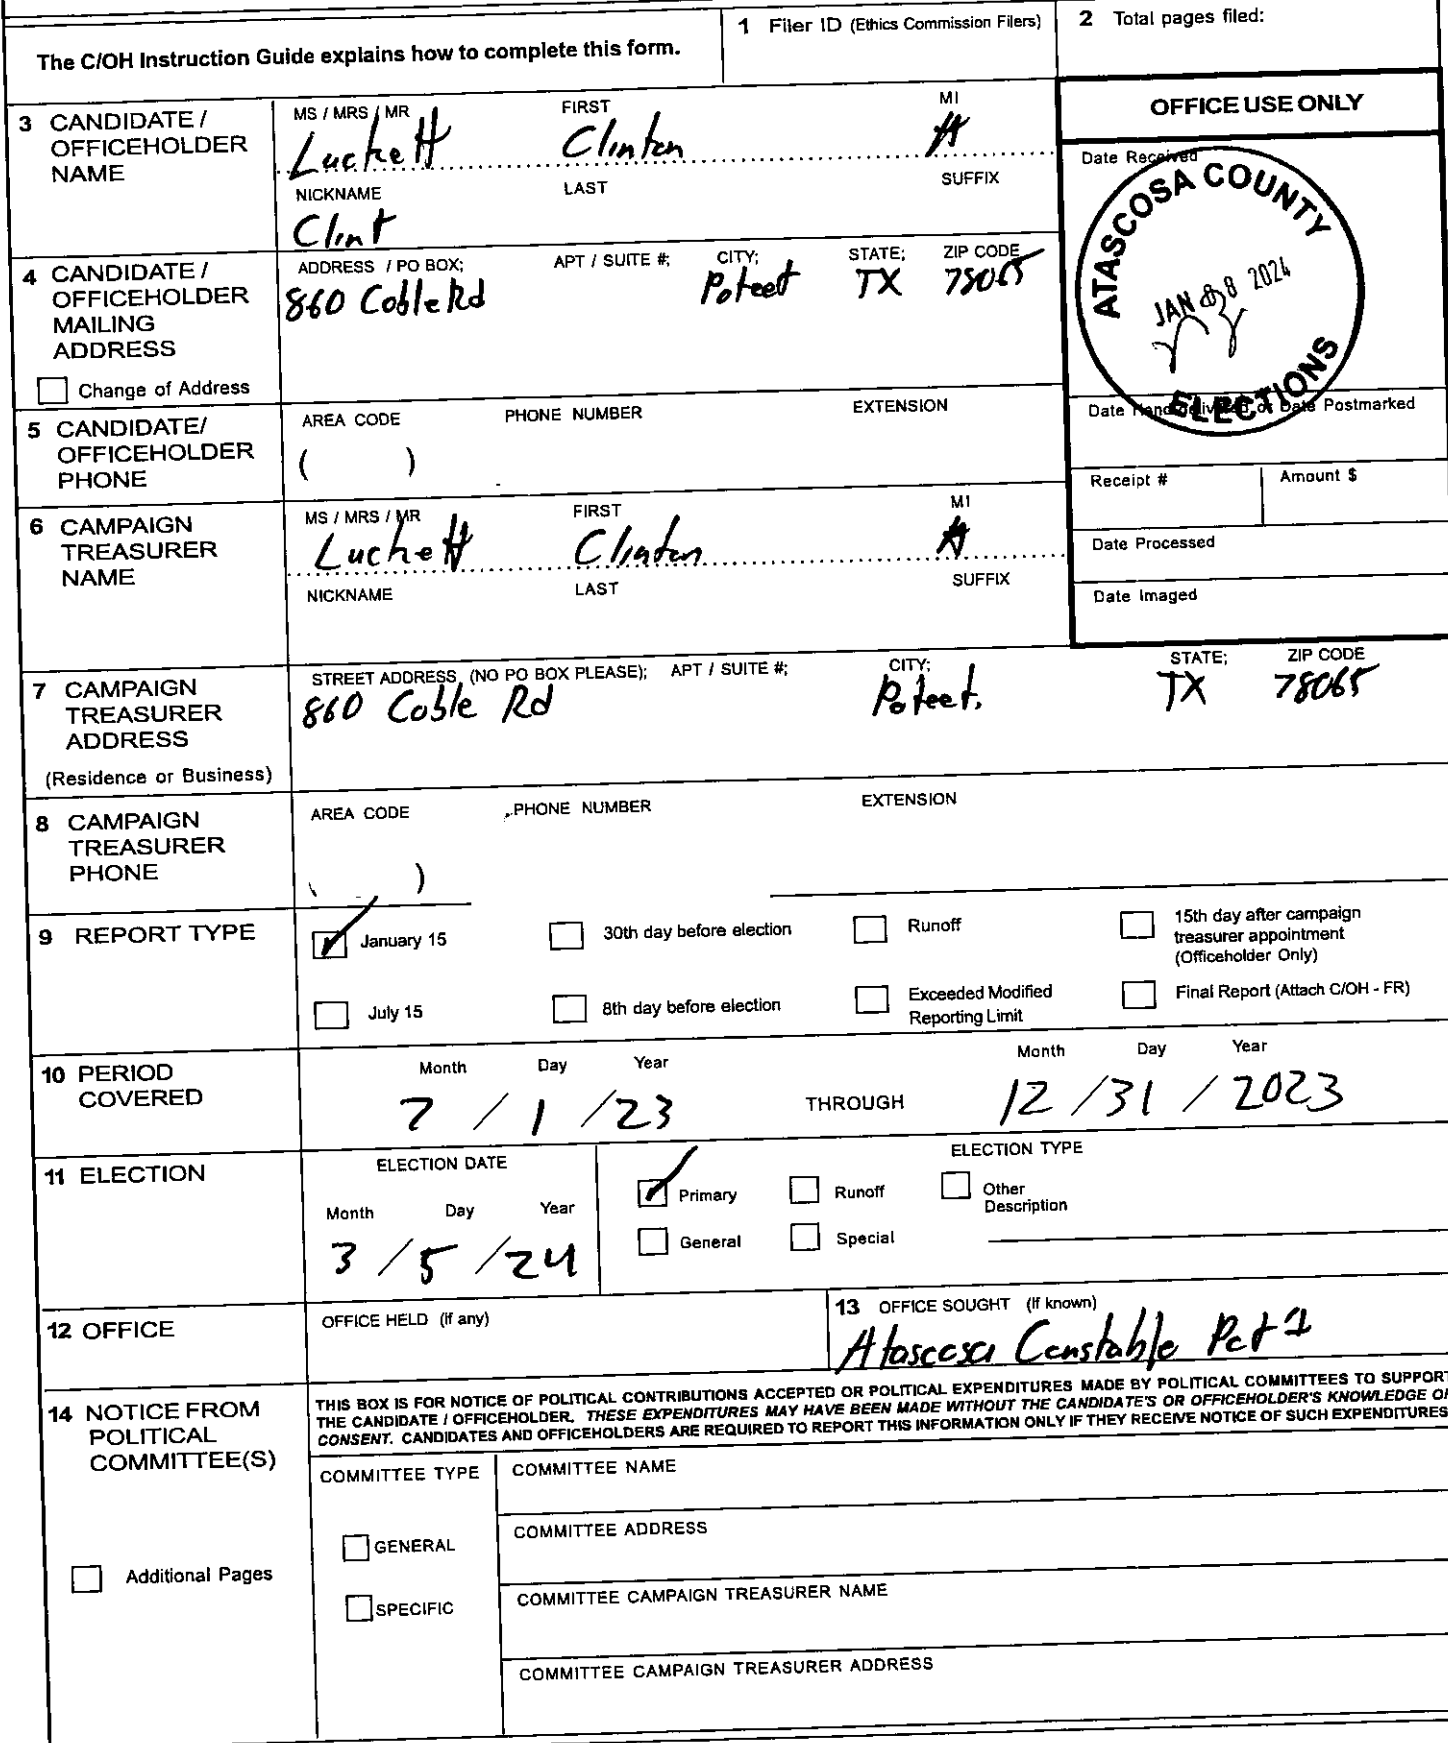 The C/OH Instruction Guide explains how to complete this form.
1 Filer ID (Ethics Commission Filers)
2 Total pages filed:
3 CANDIDATE / OFFICEHOLDER NAME
MS / MRS / MR FIRST MI
Luckett Clinton A
NICKNAME LAST SUFFIX
Clint
OFFICE USE ONLY
Date Received
ATASCOSA COUNTY
JAN 08 2024
ELECTIONS
4 CANDIDATE / OFFICEHOLDER MAILING ADDRESS
Change of Address
ADDRESS / PO BOX; APT / SUITE #; CITY; STATE; ZIP CODE
860 Coble Rd Poteet TX 78065
Date Hand-delivered or Date Postmarked
5 CANDIDATE/ OFFICEHOLDER PHONE
AREA CODE PHONE NUMBER EXTENSION
( )
Receipt # Amount $
6 CAMPAIGN TREASURER NAME
MS / MRS / MR FIRST MI
Luckett Clinton A
NICKNAME LAST SUFFIX
Date Processed
Date Imaged
7 CAMPAIGN TREASURER ADDRESS
(Residence or Business)
STREET ADDRESS (NO PO BOX PLEASE); APT / SUITE #; CITY; STATE; ZIP CODE
860 Coble Rd Poteet. TX 78065
8 CAMPAIGN TREASURER PHONE
AREA CODE PHONE NUMBER EXTENSION
( )
9 REPORT TYPE
January 15
30th day before election
Runoff
15th day after campaign treasurer appointment (Officeholder Only)
July 15
8th day before election
Exceeded Modified Reporting Limit
Final Report (Attach C/OH - FR)
10 PERIOD COVERED
Month Day Year
7 / 1 / 23
THROUGH
Month Day Year
12 / 31 / 2023
11 ELECTION
ELECTION DATE
Month Day Year
3 / 5 / 24
ELECTION TYPE
Primary Runoff Other Description
General Special
12 OFFICE
OFFICE HELD (if any)
13 OFFICE SOUGHT (if known)
Atascosa Constable Pct 1
14 NOTICE FROM POLITICAL COMMITTEE(S)
THIS BOX IS FOR NOTICE OF POLITICAL CONTRIBUTIONS ACCEPTED OR POLITICAL EXPENDITURES MADE BY POLITICAL COMMITTEES TO SUPPORT
THE CANDIDATE / OFFICEHOLDER. THESE EXPENDITURES MAY HAVE BEEN MADE WITHOUT THE CANDIDATE'S OR OFFICEHOLDER'S KNOWLEDGE OR
CONSENT. CANDIDATES AND OFFICEHOLDERS ARE REQUIRED TO REPORT THIS INFORMATION ONLY IF THEY RECEIVE NOTICE OF SUCH EXPENDITURES
Additional Pages
COMMITTEE TYPE
GENERAL
SPECIFIC
COMMITTEE NAME
COMMITTEE ADDRESS
COMMITTEE CAMPAIGN TREASURER NAME
COMMITTEE CAMPAIGN TREASURER ADDRESS